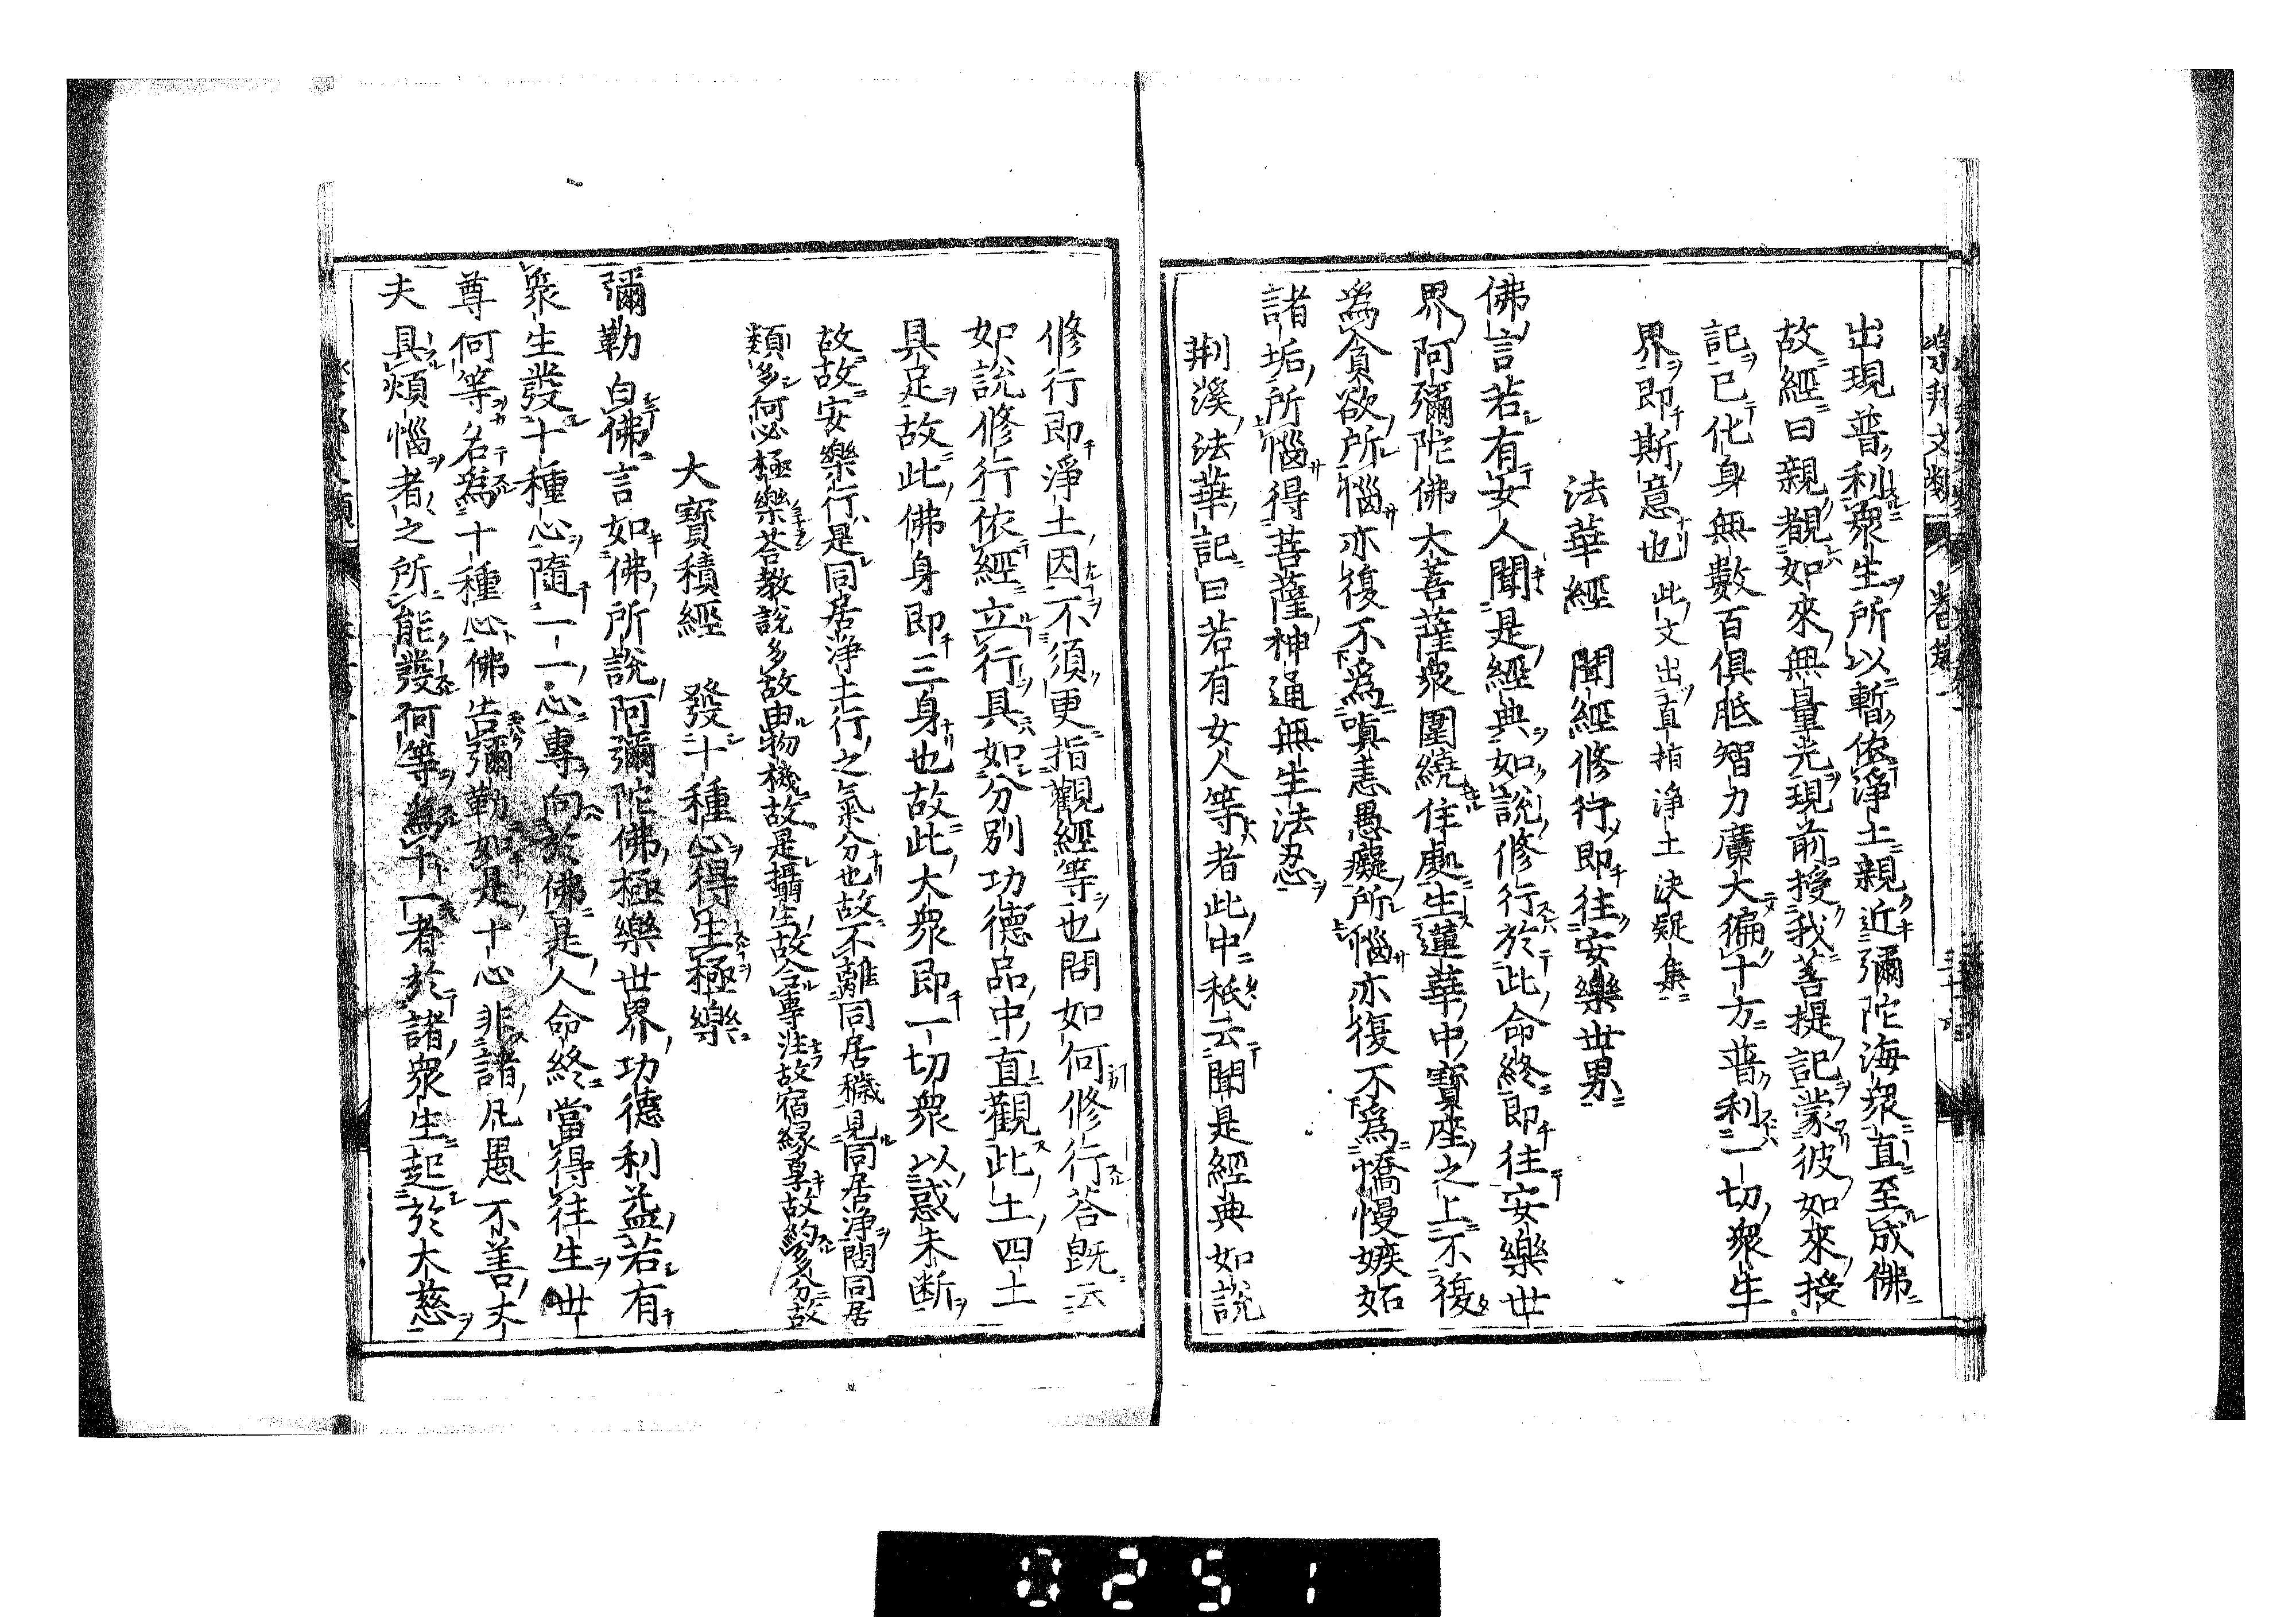 樂邦文類 卷第一
出現普利衆生所以暫依淨土親近彌陀海衆直至成佛
故經曰親覩如來無量光現前授我菩提記蒙彼如來授
記已化身無數百俱胝智力廣大徧十方普利一切衆生
界即斯意也 此文出直指淨土決疑集
法華經 聞經修行即往安樂世界
佛言若有女人聞是經典如說修行於此命終即往安樂世
界阿彌陀佛大菩薩衆圍繞住處生蓮華中寶座之上不復
爲貪欲所惱亦復不爲嗔恚愚癡所惱亦復不爲憍慢嫉妬
諸垢所惱得菩薩神通無生法忍
荆溪法華記曰若有女人等者此中秖云聞是經典如說
修行即淨土因不須更指觀經等也問如何修行荅旣云
如說修行依經立行具如分別功德品中直觀此土四土
具足故此佛身即三身也故此大衆即一切衆以惑未断
故故安樂行是同居淨土行之氣分也故不離同居穢見同居淨問同居
類多何必極樂荅教說多故由物機故是攝生故令專注故宿緣厚故約多分故
大寶積經 發十種心得生極樂
彌勒白佛言如佛所說阿彌陀佛極樂世界功德利益若有
衆生發十種心隨一一心專向於佛是人命終當得往生世
尊何等名爲十種心佛告彌勒如是十心非諸凡愚不善丈
夫具煩惱者之所能發何等爲十一者於諸衆生起於大慈
0251